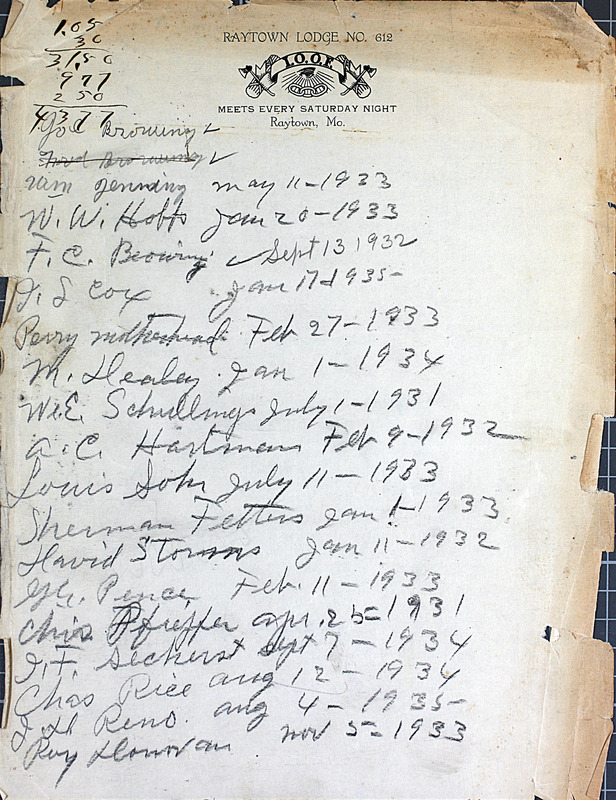 1.05
30
31.50
9 77
2 50
43 77
RAYTOWN LODGE NO. 612
I.O.O.F.
MEETS EVERY SATURDAY NIGHT
Raytown, Mo.
Joe Browning ✓
Fred Browning ✓
Jenning may 11-1933
W. W. Hobbs Jan 20-1933
F. C. Browning ✓ Sept 13 1932
J. S Cox Jan 17 1935-
Perry Feb 27-1933
M. Healey Jan 1-1934
W.E. Schullings July 1-1931
A. C. Hartman Feb 9-1932
Louis Sohn July 11-1933
Sherman Fetters Jan 1-1933
David Storms Jan 11-1932
Pence Feb. 11-1933
Chris Pfieffer apr. 25-1931
Sept 7-1934
Chas Rice aug 12-1934
Reno. aug 4-1935-
Roy Donovan nov 5-1933